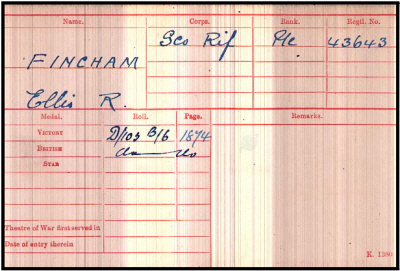 Name. Corps. Rank. Regtl. No.
FINCHAM Sco Rif Pte 43643
Ellis R.
Medal. Roll. Page. Remarks.
VICTORY D/103 B/6 1874
BRITISH do do
STAR
Theatre of War first served in
Date of entry therein
K. 1380